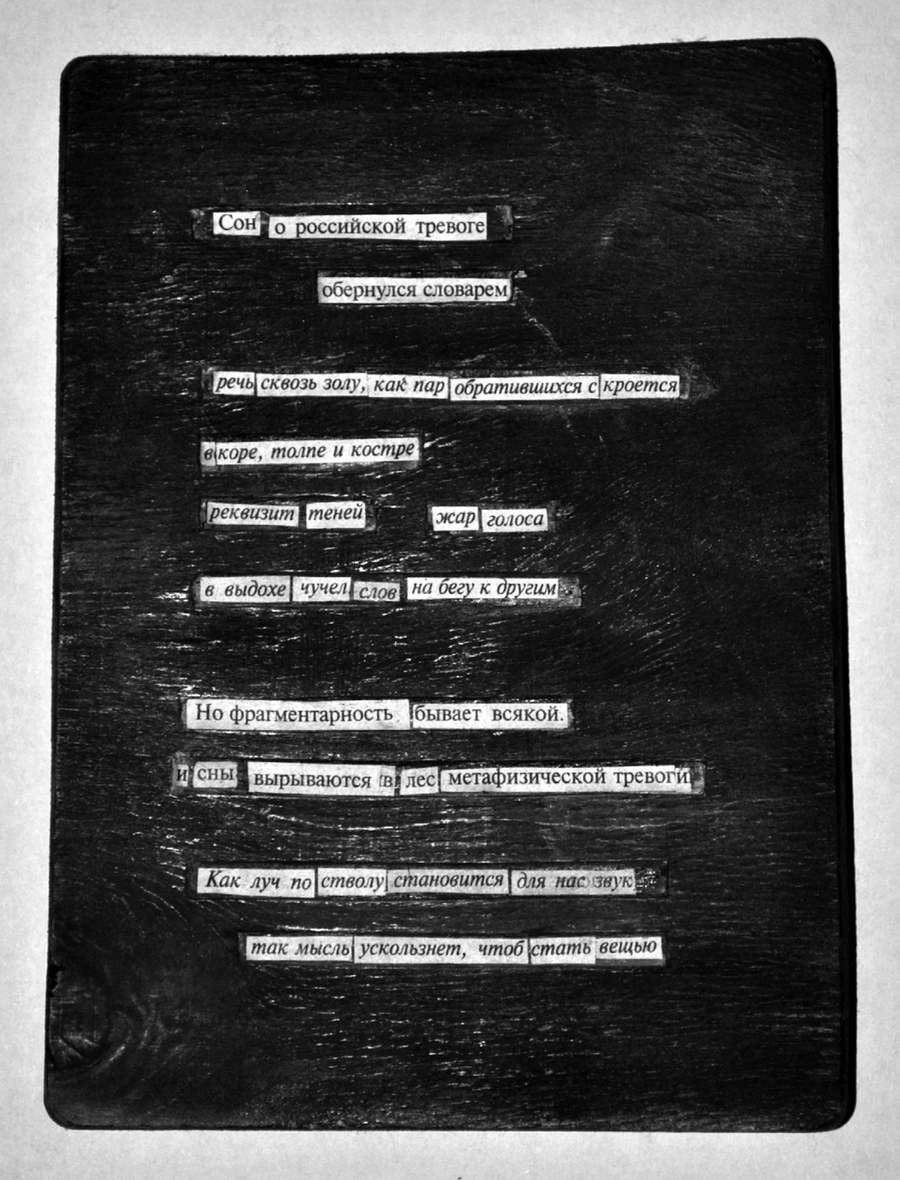 Сон о российской тревоге
обернулся словарем
речь сквозь золу, как пар обратившихся с кроется
в коре, толпе и костре
реквизит теней жар голоса
в выдохе чучел слов на бегу к другим
Но фрагментарность бывает всякой.
и сны вырываются в лес метафизической тревоги
Как луч по стволу становится для нас звук
так мысль ускользнет, чтоб стать вещью